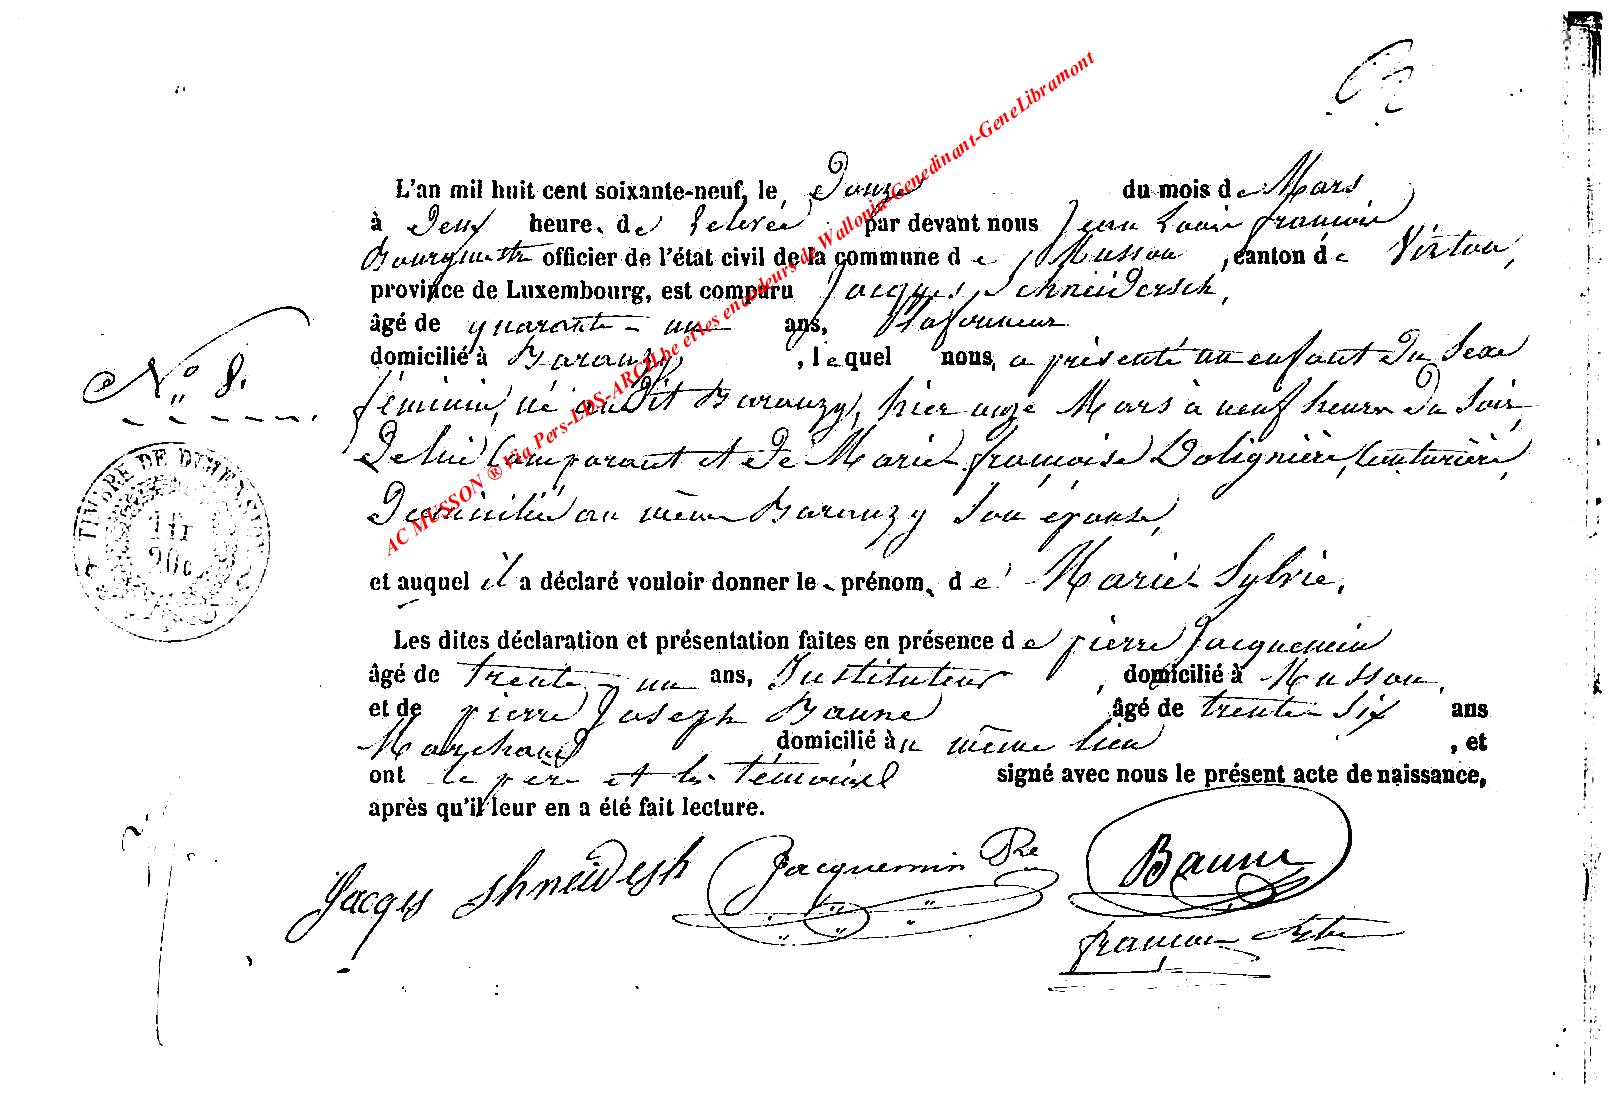 L'an mil huit cent soixante-neuf, le Douze du mois de Mars
à Deux heure de Relevée par devant nous Jean Louis François
Bourgmestre officier de l'état civil de la commune de Musson, canton de Virton,
province de Luxembourg, est comparu Jacques Schneidersch,
âgé de quarante-un ans, Plafonneur
domicilié à Baranzy, lequel nous a présenté un enfant du Sexe
N° 8.
féminin, né au Dit Baranzy, hier onze Mars à neuf heures Du Soir,
De lui Comparant et De Marie françoise Dolignière, Couturière,
Domiciliée au même Baranzy Son épouse,
TIMBRE DE DIMENSION
1 fr
20c
et auquel il a déclaré vouloir donner le prénom de Marie Sylvie.
Les dites déclaration et présentation faites en présence de pierre Jacquemin
âgé de trente-un ans, Instituteur, domicilié à Musson,
et de pierre Joseph Baune âgé de trente Six ans
Marchand domicilié au même lieu, et
ont le père et les témoins signé avec nous le présent acte de naissance,
après qu'il leur en a été fait lecture.
Jacqes shneidesh Jacquemin Pre Baune
françois
AC MUSSON ® Via Pers-LDS-ARCH.be et les encodeurs de Wallonia-Genedinant-GeneLibramont